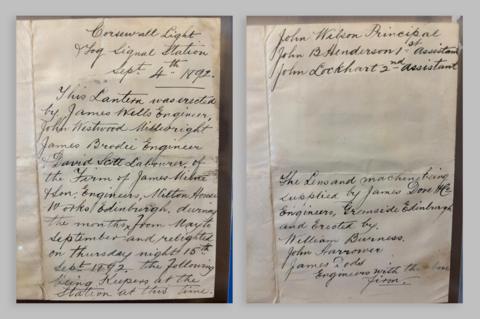 Corsewall Light
& Fog Signal Station
Sept. 4th 1892.
This Lantern was erected
by James Wells Engineer,
John Westwood Millwright
James Brodie Engineer
& David Scott Labourer, of
the Firm of James Milne
& Son, Engineers, Milton House
Works, Edinburgh, during
the months from May to
September and relighted
on thursday night 15th
Sept 1892. the following
being Keepers at the
Station at this time.
John Wilson Principal
John B Henderson 1st assistant
John Lockhart 2nd assistant
The Lens and machine being
supplied by James Dove & Co
Engineers, Greenside Edinburgh
and Erected by
William Burness.
John Harrower.
James Dods
Engineers with the above
firm.